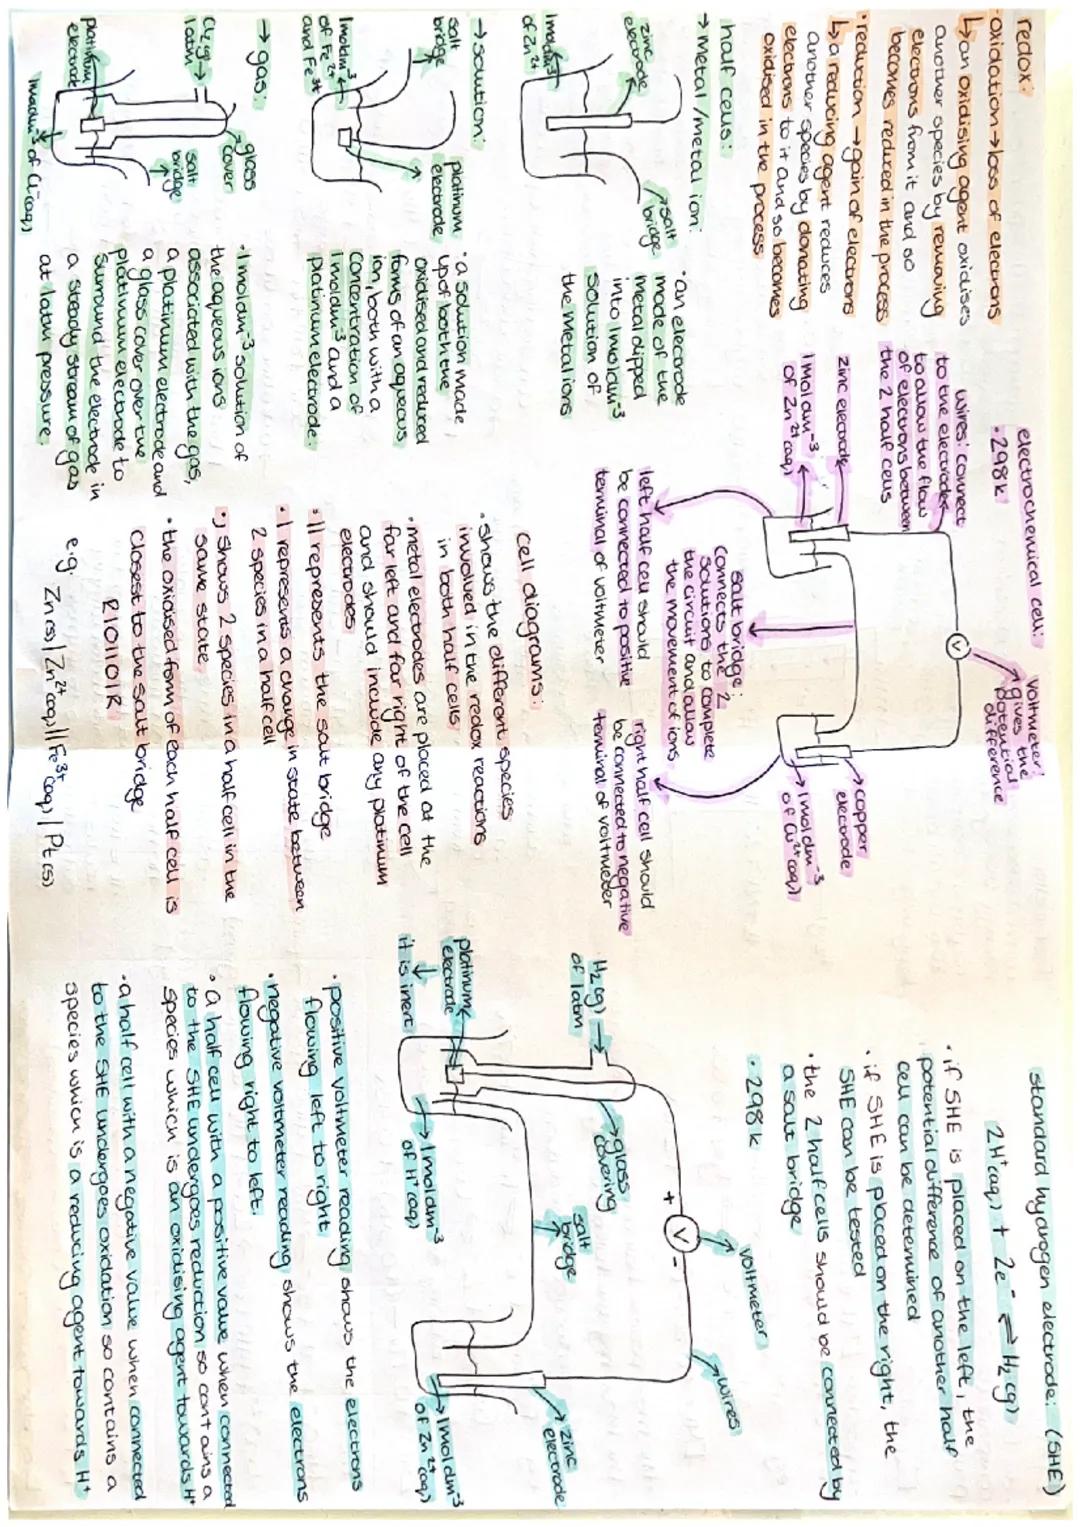 redox:
· oxidation → loss of electrons
↳ an oxidising agent oxidises
another species by removing
electrons from it and so
becomes reduced in the process
· reduction → gain of electrons
↳ a reducing agent reduces
another species by donating
electrons to it and so becomes
oxidised in the process
half cells:
→ metal/metal ion:
zinc
electrode
1moldm⁻³
of Zn²⁺
salt
bridge
· an electrode
made of the
metal dipped
into 1moldm⁻³
solution of
the metal ions
→ solution:
salt
bridge
platinum
electrode
1moldm⁻³
of Fe²⁺
and Fe³⁺
· a solution made
up of both the
oxidised and reduced
forms of an aqueous
ion, both with a
concentration of
1moldm⁻³ and a
platinum electrode.
→ gas:
Cl₂(g) →
1atm
glass
cover
salt
bridge
platinum
electrode
1moldm⁻³ of Cl⁻(aq)
· 1moldm⁻³ solution of
the aqueous ions
associated with the gas,
a platinum electrode and
a glass cover over the
platinum electrode to
surround the electrode in
a steady stream of gas
at 1atm pressure.
electrochemical cell:
· 298k
voltmeter:
gives the
potential
difference
wires: connect
to the electrodes
to allow the flow
of electrons between
the 2 half cells
V
zinc electrode
1mol dm⁻³
of Zn²⁺(aq)
copper
electrode
1moldm⁻³
of Cu²⁺(aq)
salt bridge:
connects the 2
solutions to complete
the circuit and allow
the movement of ions
left half cell should
be connected to positive
terminal of voltmeter
right half cell should
be connected to negative
terminal of voltmeter
cell diagrams:
· shows the different species
involved in the redox reactions
in both half cells
· metal electrodes are placed at the
far left and far right of the cell
and should include any platinum
electrodes
· || represents the salt bridge
· | represents a change in state between
2 species in a half cell
· , shows 2 species in a half cell in the
same state
· the oxidised form of each half cell is
closest to the salt bridge
R|O||O|R
e.g. Zn(s) | Zn²⁺(aq) || Fe³⁺(aq) | Pt(s)
standard hydrogen electrode: (SHE)
2H⁺(aq) + 2e⁻ ⇌ H₂(g)
· if SHE is placed on the left, the
potential difference of another half
cell can be determined
· if SHE is placed on the right, the
SHE can be tested
· the 2 half cells should be connected by
a salt bridge
· 298k
voltmeter
+ V -
wires
H₂(g) →
of 1atm
glass
covering
salt
bridge
platinum
electrode
↓
it is inert
1moldm⁻³
of H⁺(aq)
zinc
electrode
1moldm⁻³
of Zn²⁺(aq)
· positive voltmeter reading shows the electrons
flowing left to right
· negative voltmeter reading shows the electrons
flowing right to left
· a half cell with a positive value when connected
to the SHE undergoes reduction so contains a
species which is an oxidising agent towards H⁺
· a half cell with a negative value when connected
to the SHE undergoes oxidation so contains a
species which is a reducing agent towards H⁺